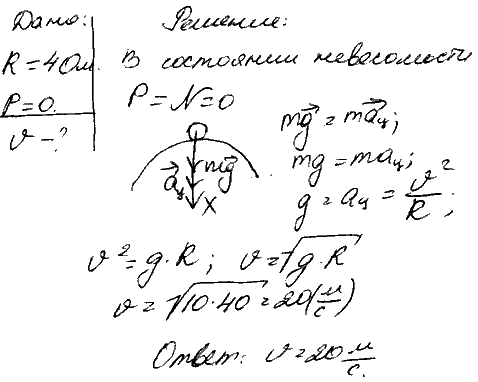 Дано:
R = 40м.
P = 0.
v – ?
Решение:
В состоянии невесомости
P = N = 0
mg⃗ = ma⃗ц;
mg = maц;
g = aц = v²/R;
a⃗ц mg⃗
X
v² = g·R; v = √g·R
v = √10·40 = 20(м/с)
Ответ: v = 20 м/с.